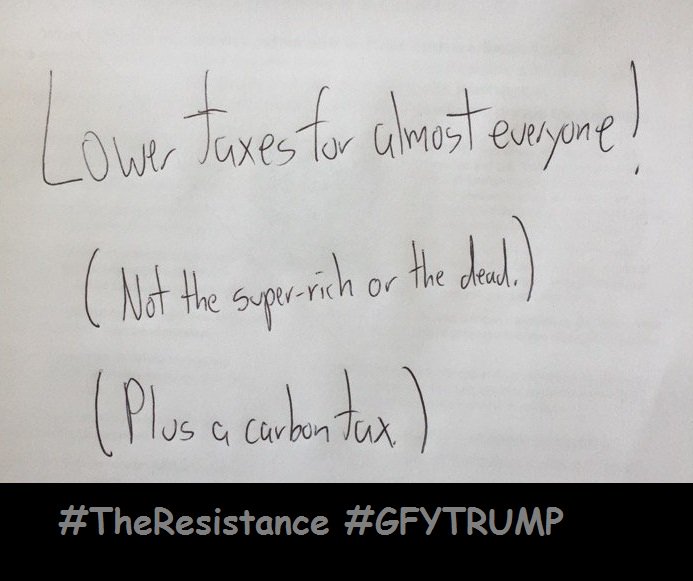 Lower taxes for almost everyone!
(Not the super-rich or the dead.)
(Plus a carbon tax.)
#TheResistance #GFYTRUMP